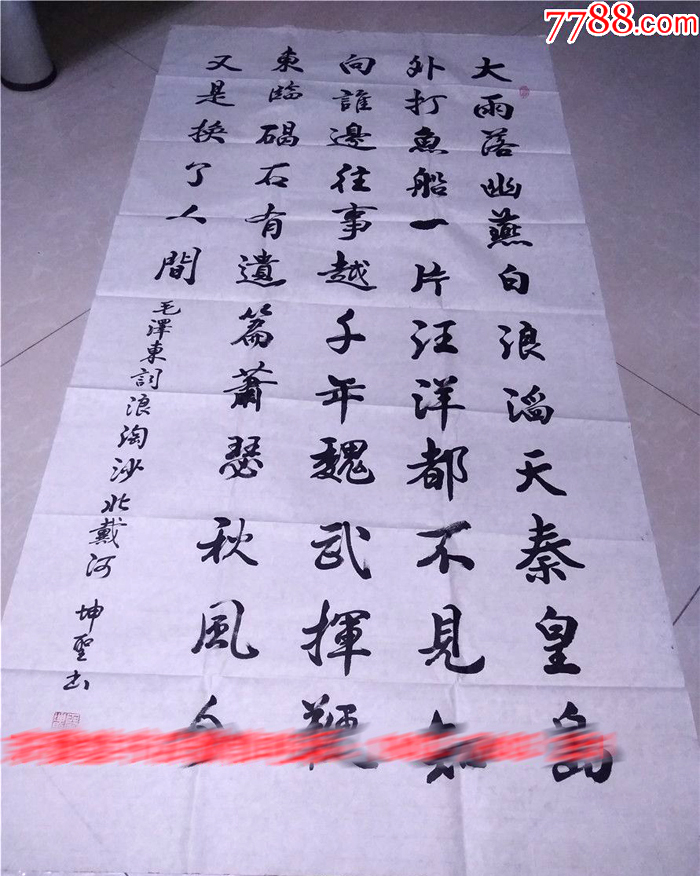 7788.com
中国收藏热线
大雨落幽燕白浪滔天秦皇島
外打魚船一片汪洋都不見知
向誰邊往事越千年魏武揮鞭
東臨碣石有遺篇蕭瑟秋風今
又是换了人間
毛澤東詞浪淘沙北戴河 坤聖书